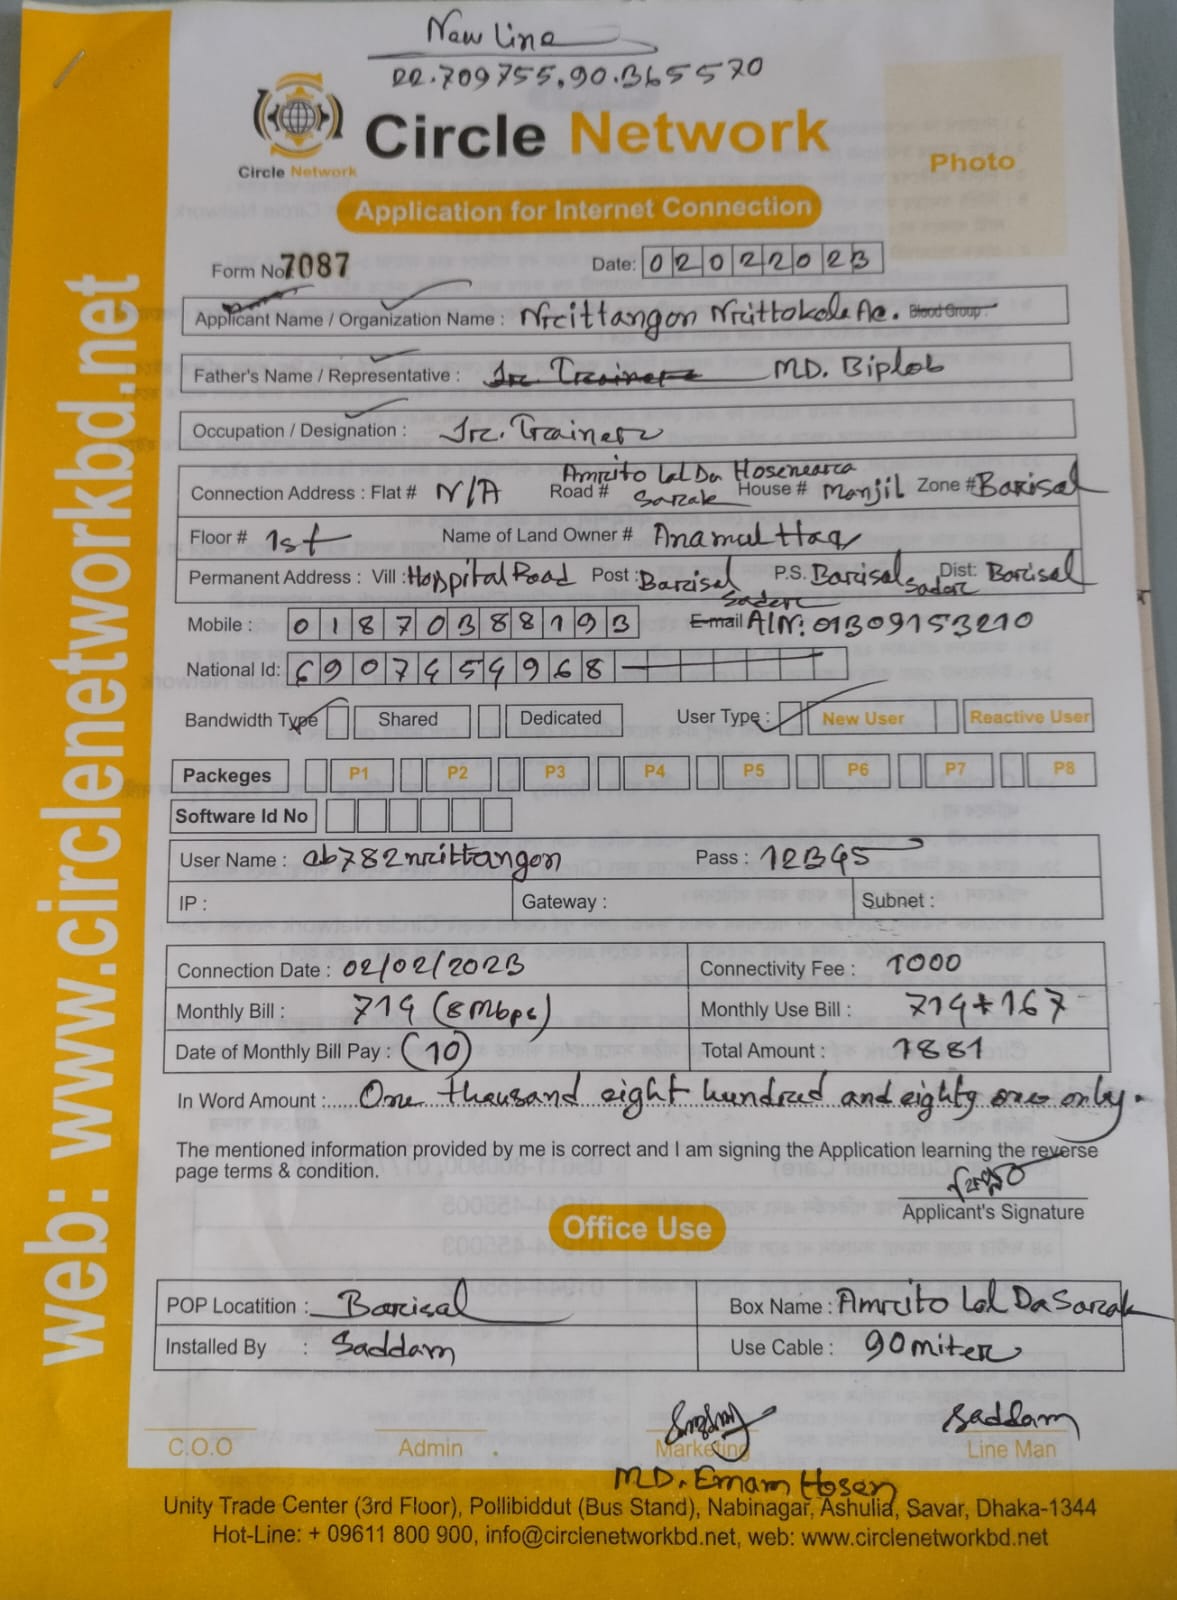 New Line
22.709755,90.365570
Circle Network
Circle Network
Photo
Application for Internet Connection
Form No 7087 Date: 02022023
Applicant Name / Organization Name : Nrittangon Nrittokola Ac. Blood Group :
Father's Name / Representative : Jr. Trainer MD. Biplob
Occupation / Designation : Jr. Trainer
Connection Address : Flat # N/A Road # Amrito Lal Da Sarak House # Hoseneara Manjil Zone # Barisal
Floor # 1st Name of Land Owner # Anamul Haq
Permanent Address : Vill : Hospital Road Post : Barisal Sadar P.S. Barisal Sadar Dist: Barisal
Mobile : 01870388193 Email AlN: 01309153210
National Id: 6907454968
Bandwidth Type Shared Dedicated User Type : New User Reactive User
Packeges P1 P2 P3 P4 P5 P6 P7 P8
Software Id No
User Name : cb782nrittangon Pass : 12345
IP : Gateway : Subnet :
Connection Date : 02/02/2023 Connectivity Fee : 1000
Monthly Bill : 714 (8Mbps) Monthly Use Bill : 714+167
Date of Monthly Bill Pay : (10) Total Amount : 1881
In Word Amount : One thousand eight hundred and eighty one only.
The mentioned information provided by me is correct and I am signing the Application learning the reverse
page terms & condition.
Applicant's Signature
Office Use
POP Locatition : Barisal Box Name : Amrito Lal Da Sarak
Installed By : Saddam Use Cable : 90 miter
Saddam
C.O.O Admin Marketing Line Man
MD. Emam Hosen
Unity Trade Center (3rd Floor), Pollibiddut (Bus Stand), Nabinagar, Ashulia, Savar, Dhaka-1344
Hot-Line: + 09611 800 900, info@circlenetworkbd.net, web: www.circlenetworkbd.net
web: www.circlenetworkbd.net